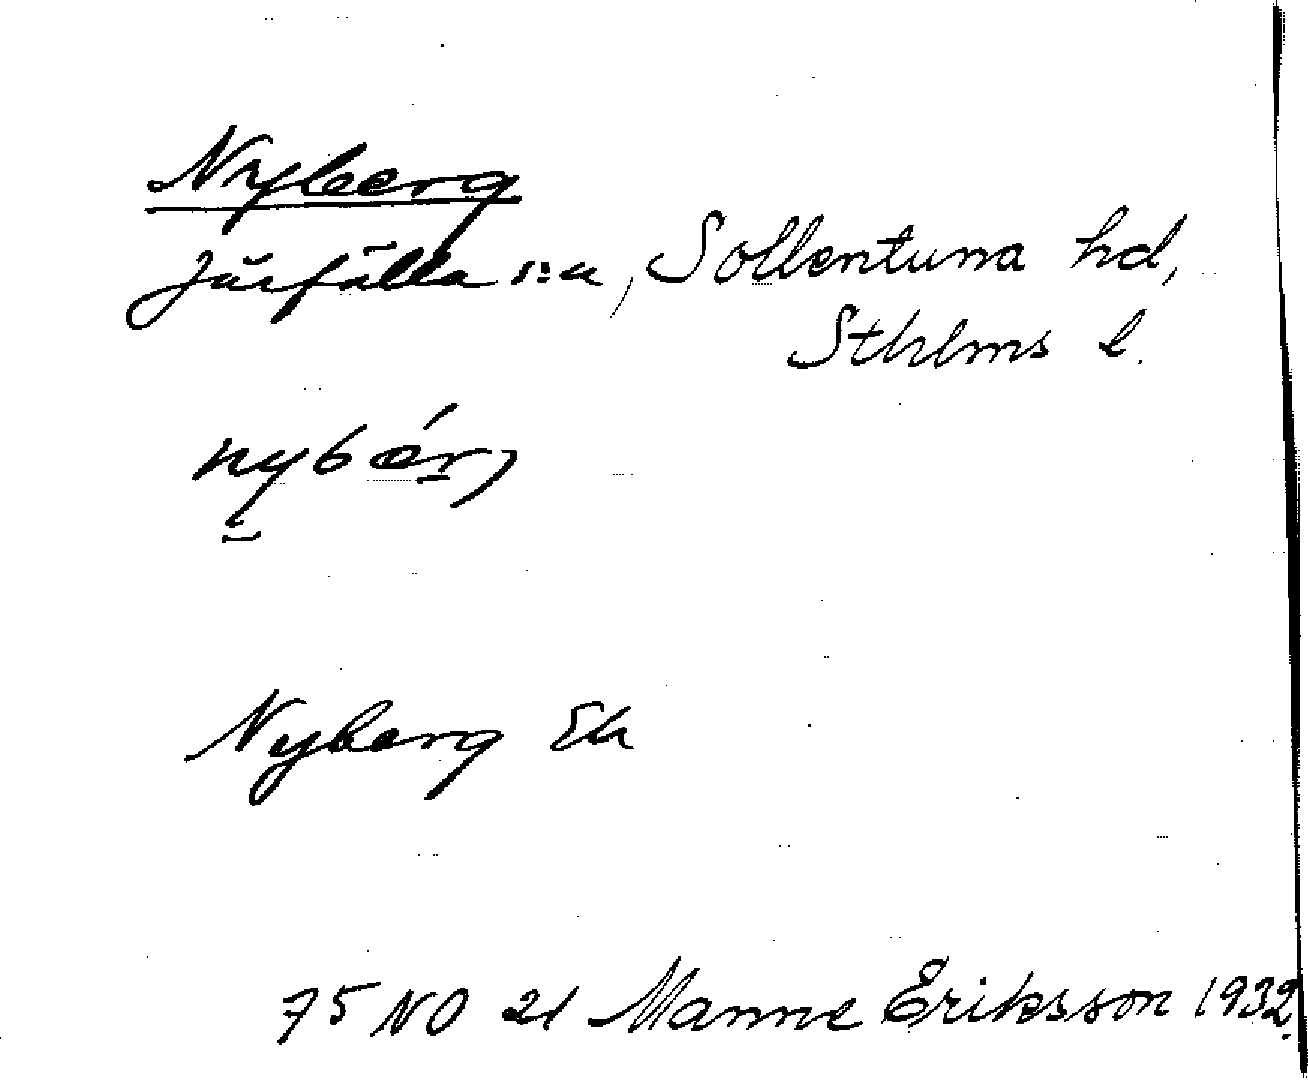 Nyberg
Järfälla s:n, Sollentuna hd,
Sthlms l.
Nyberg Ek
75 NO 21 Manne Eriksson 1932.